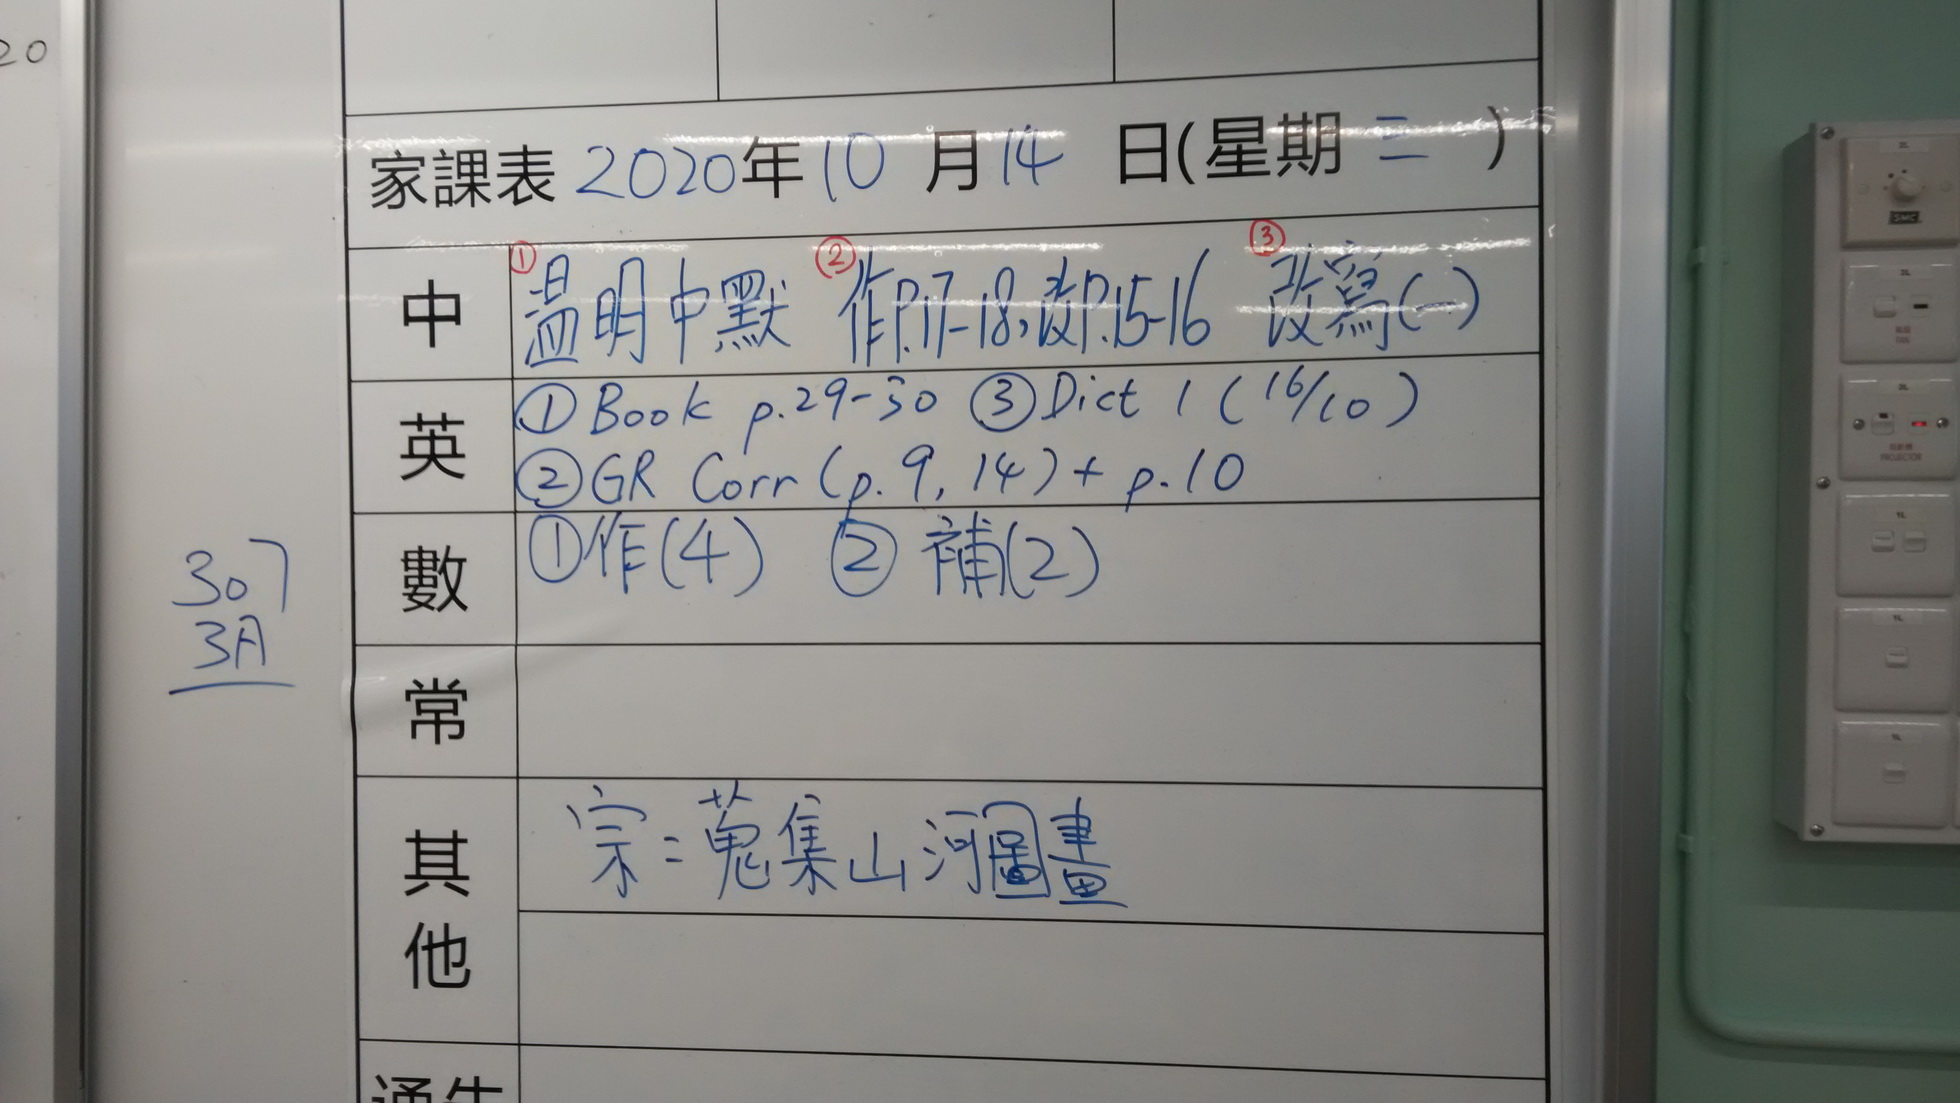 20
家課表 2020年10月14日(星期三)
中 ①溫明中默 ②作P.17-18,改P.15-16 ③改寫(一)
英 ①Book p.29-30 ③Dict 1 (16/10)
②GR Corr (p.9, 14) + p.10
數 ①作(4) ②補(2)
307
3A
常
其他
宗:蒐集山河圖畫
通告
2L
SMC
2L
2L
PROJECTOR
1L
1L
1L